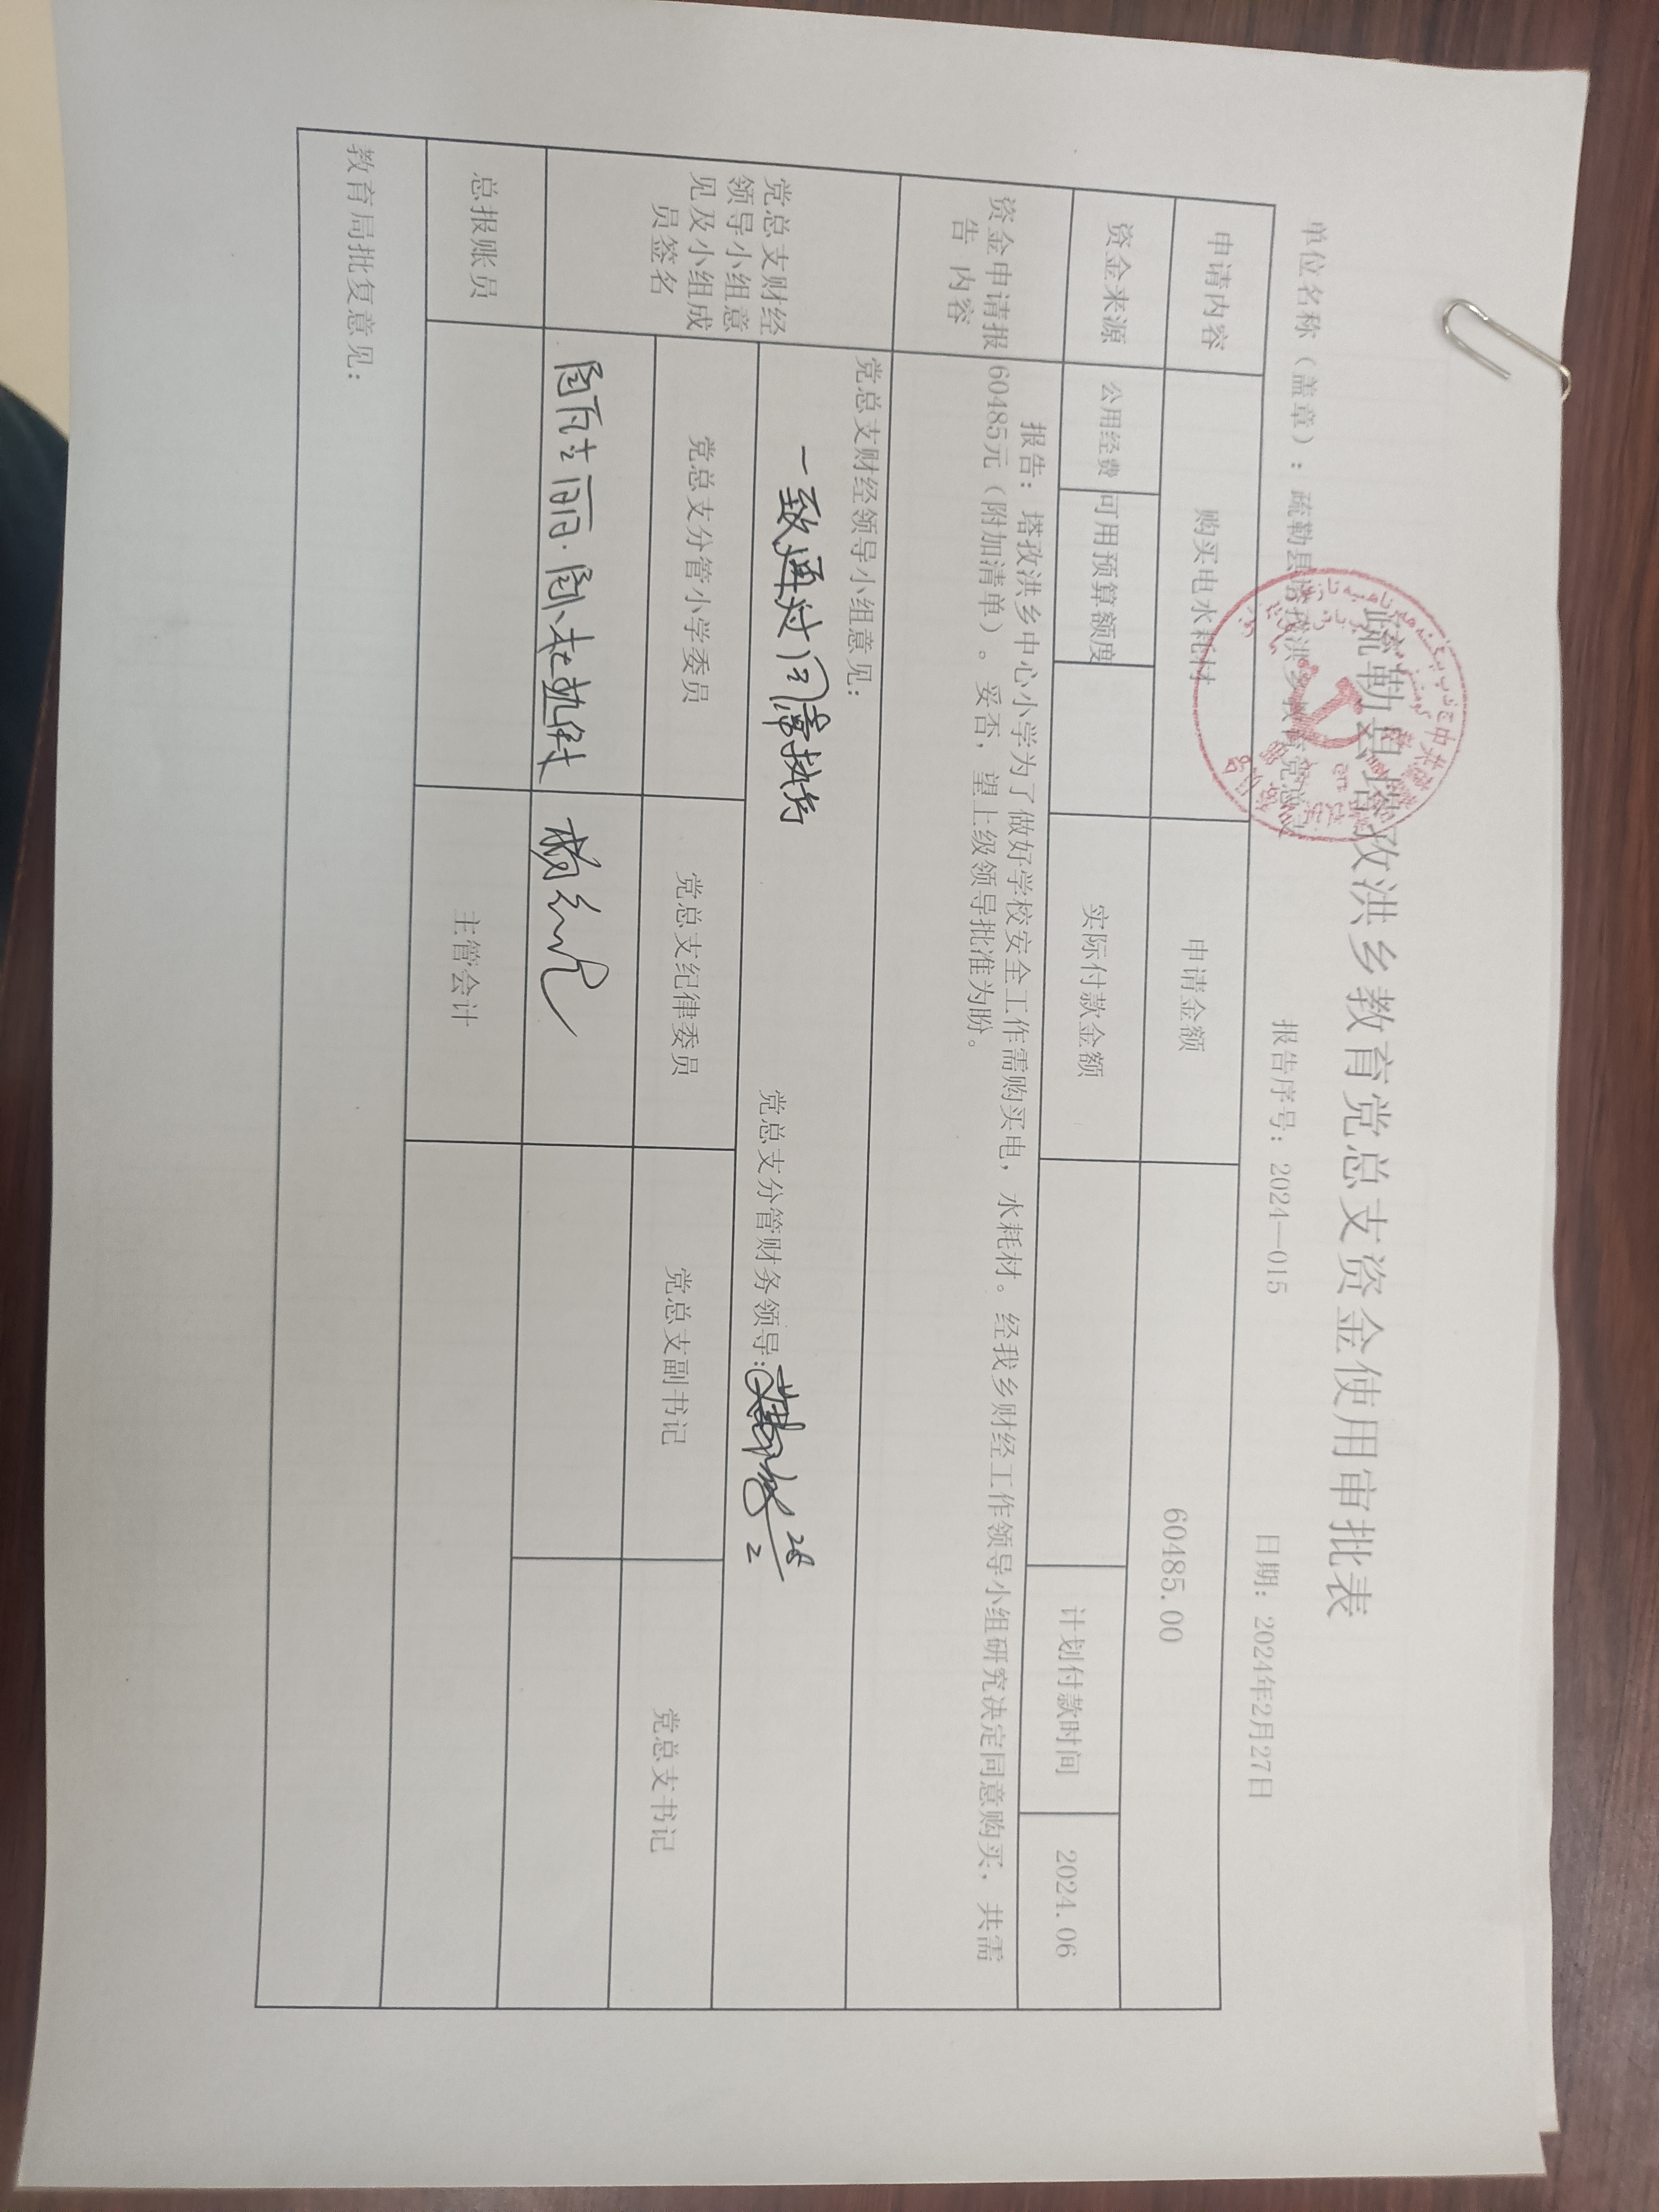 疏勒县塔孜洪乡教育党总支资金使用审批表
单位名称（盖章）：疏勒县塔孜洪乡教育党总支 报告序号：2024—015 日期：2024年2月27日
申请内容 购买电水耗材 申请金额 60485.00
资金来源 公用经费 可用预算额度 实际付款金额 计划付款时间 2024.06
资金申请报告 内容
报告：塔孜洪乡中心小学为了做好学校安全工作需购买电，水耗材。经我乡财经工作领导小组研究决定同意购买，共需
60485元（附加清单）。妥否，望上级领导批准为盼。
党总支财经领导小组意见及小组成员签名
党总支财经领导小组意见：
一致通过同意执行
党总支分管财务领导：
28/2
党总支分管小学委员 党总支纪律委员 党总支副书记 党总支书记
总报账员 主管会计
教育局批复意见：